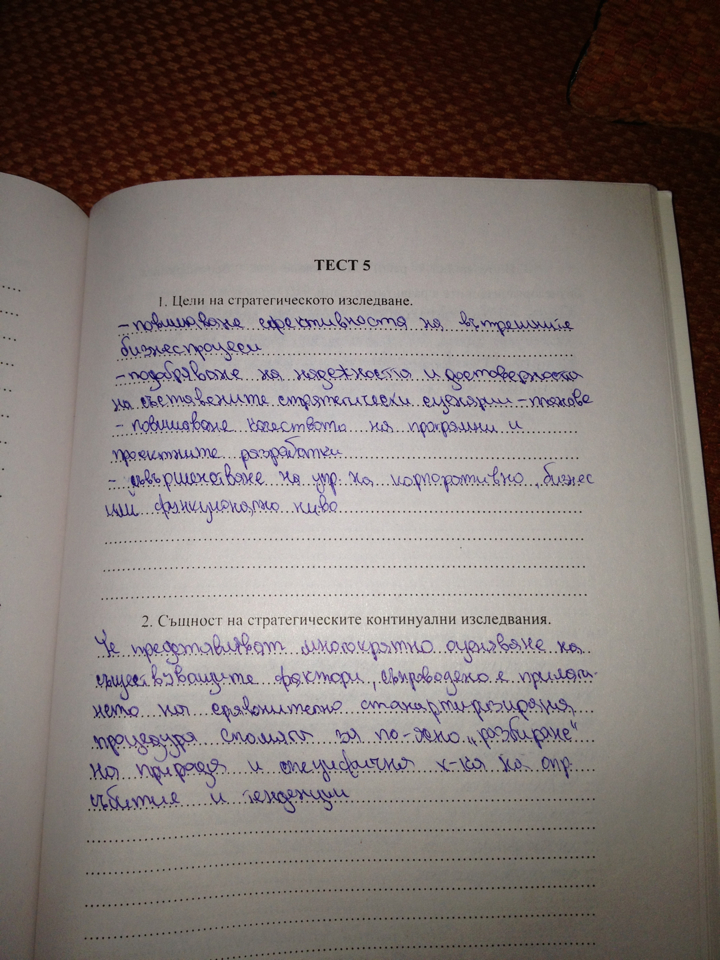 ТЕСТ 5
1. Цели на стратегическото изследване.
- повишаване ефективността на вътрешните
бизнеспроцеси
- подобряване на надежността и достоверността
на съставените стратегически сценарии -
- повишаване качеството на програмни и
проектните разработки
- усъвършенстване на упр. на корпоративно, бизнес
или функционално ниво
2. Същност на стратегическите континуални изследвания.
Че представляват многократно оценяване на
съществуващите фактори, съпроводено с прилага-
нето на сравнително стандартизирания
процедура спомага за по-ясно „разбиране"
на природа и специфична х-ка на опр.
събитие и тенденции